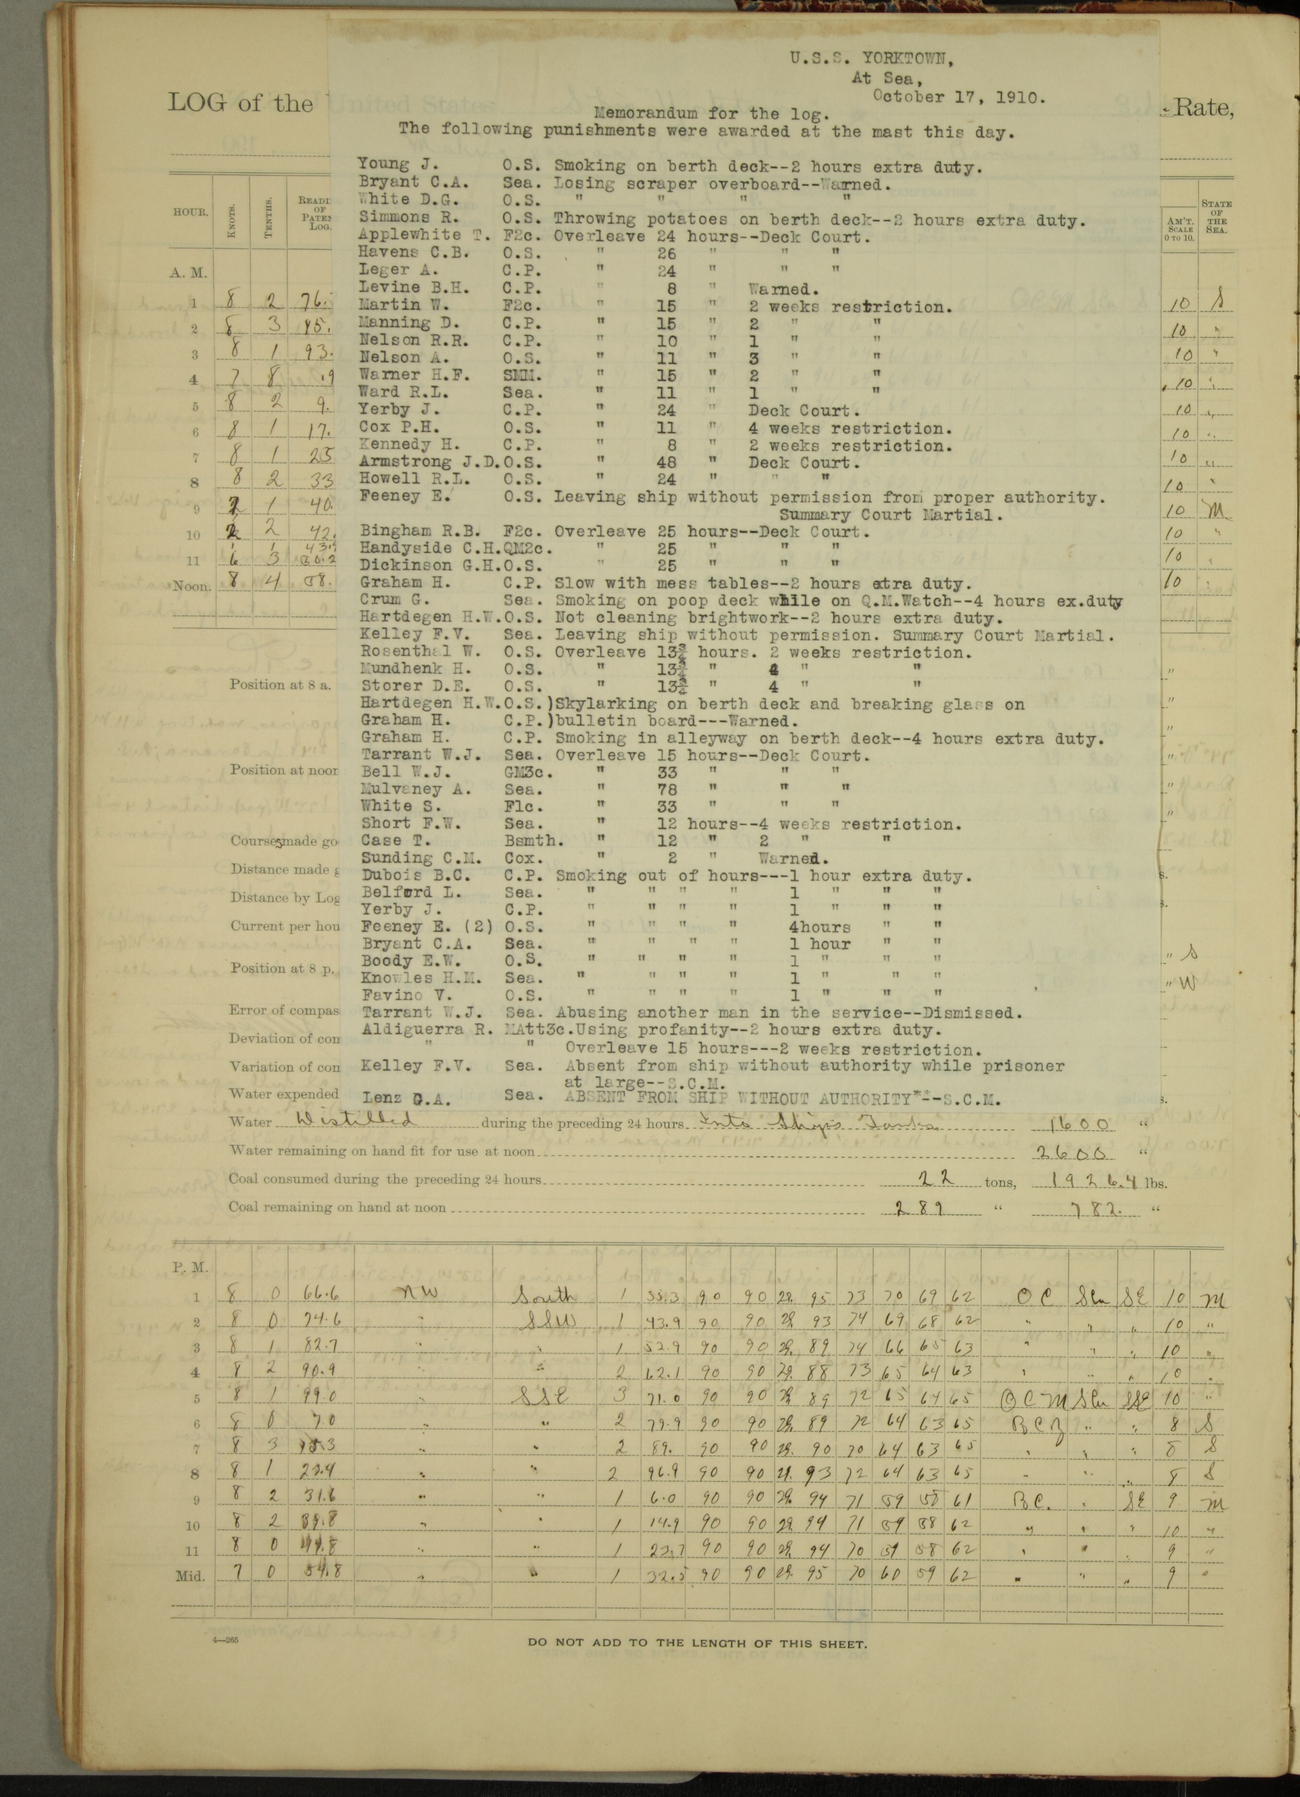 U.S.S. YORKTOWN,
At Sea,
October 17, 1910.
LOG of the
-Rate,
Memorandum for the log.
The following punishments were awarded at the mast this day.
Young J. O.S. Smoking on berth deck--2 hours extra duty.
Bryant C.A. Sea. Losing scraper overboard--Warned.
White D.G. O.S. " " " "
Simmons R. O.S. Throwing potatoes on berth deck--2 hours extra duty.
Applewhite T. F2c. Overleave 24 hours--Deck Court.
Havens C.B. O.S. " 26 " " "
Leger A. C.P. " 24 " " "
Levine B.H. C.P. " 8 " Warned.
Martin W. F2c. " 15 " 2 weeks restriction.
Manning D. C.P. " 15 " 2 " "
Nelson R.R. C.P. " 10 " 1 " "
Nelson A. O.S. " 11 " 3 " "
Warner H.F. SMM. " 15 " 2 " "
Ward R.L. Sea. " 11 " 1 " "
Yerby J. C.P. " 24 " Deck Court.
Cox P.H. O.S. " 11 " 4 weeks restriction.
Kennedy H. C.P. " 8 " 2 weeks restriction.
Armstrong J.D. O.S. " 48 " Deck Court.
Howell R.L. O.S. " 24 " " "
Feeney E. O.S. Leaving ship without permission from proper authority.
Summary Court Martial.
Bingham R.B. F2c. Overleave 25 hours--Deck Court.
Handyside C.H. QM2c. " 25 " " "
Dickinson G.H. O.S. " 25 " " "
Graham H. C.P. Slow with mess tables--2 hours extra duty.
Crum G. Sea. Smoking on poop deck while on Q.M.Watch--4 hours ex.duty
Hartdegen H.W. O.S. Not cleaning brightwork--2 hours extra duty.
Kelley F.V. Sea. Leaving ship without permission. Summary Court Martial.
Rosenthal W. O.S. Overleave 13¾ hours. 2 weeks restriction.
Mundhenk H. O.S. " 13¾ " 4 " "
Storer D.E. O.S. " 13¾ " 4 " "
Hartdegen H.W. O.S.)Skylarking on berth deck and breaking glass on
Graham H. C.P.)bulletin board---Warned.
Graham H. C.P. Smoking in alleyway on berth deck--4 hours extra duty.
Tarrant W.J. Sea. Overleave 15 hours--Deck Court.
Bell W.J. GM3c. " 33 " " "
Mulvaney A. Sea. " 78 " " "
White S. F1c. " 33 " " "
Short F.W. Sea. " 12 hours--4 weeks restriction.
Case T. Bsmth. " 12 " 2 " "
Sunding C.M. Cox. " 2 " Warned.
Dubois B.C. C.P. Smoking out of hours---1 hour extra duty.
Belford L. Sea. " " " " 1 " " "
Yerby J. C.P. " " " " 1 " " "
Feeney E. (2) O.S. " " " " 4hours " "
Bryant C.A. Sea. " " " " 1 hour " "
Boody E.W. O.S. " " " " 1 " " "
Knowles H.M. Sea. " " " " 1 " " "
Favino V. O.S. " " " " 1 " " "
Tarrant W.J. Sea. Abusing another man in the service--Dismissed.
Aldiguerra R. MAtt3c. Using profanity--2 hours extra duty.
" " Overleave 15 hours---2 weeks restriction.
Kelley F.V. Sea. Absent from ship without authority while prisoner
at large--S.C.M.
Lenz G.A. Sea. ABSENT FROM SHIP WITHOUT AUTHORITY--S.C.M.
HOUR. KNOTS. TENTHS. OF LOG. AM'T. SCALE 0 TO 10. STATE OF THE SEA.
A. M.
1 8 2 76. 10 S
2 8 3 85. 10 "
3 8 1 93. 10 "
4 7 8 .9 10 "
5 8 2 9. 10 "
6 8 1 17. 10 "
7 8 1 25 10 "
8 8 2 33 10 "
9 1 40. 10 M
10 2 2 42. 10 "
11 6 3 10 "
Noon. 8 4 58. 10 "
Position at 8 a.
Position at noon
Courses made go
Distance made g
Distance by Log
Current per hou
Position at 8 p.
" S
" W
Error of compas
Deviation of con
Variation of con
Water expended
Water Distilled during the preceding 24 hours Into Ships Tanks 1600 "
Water remaining on hand fit for use at noon 2600 "
Coal consumed during the preceding 24 hours 22 tons, 1926.4 lbs.
Coal remaining on hand at noon 289 " 782. "
P. M.
1 8 0 66.6 NW South 1 35.3 90 90 29. 95 73 70 69 62 O C Scu SE 10 M
2 8 0 74.6 " SSW 1 43.9 90 90 29. 93 74 69 68 62 " " " 10 "
3 8 1 82.7 " " 1 52.9 90 90 29. 89 74 66 65 63 " " " 10 "
4 8 2 90.9 " " 2 62.1 90 90 29. 88 73 65 64 63 " " " 10 "
5 8 1 99.0 " SSE 3 71.0 90 90 29. 89 72 65 64 65 O C M Scu SSE 10 "
6 8 0 7.0 " " 2 79.9 90 90 29. 89 72 64 63 65 B C Z " " 8 S
7 8 3 15.3 " " 2 89. 90 90 29. 90 70 64 63 65 " " " 8 S
8 8 1 23.4 " " 2 96.9 90 90 29. 93 72 64 63 65 " " " 8 S
9 8 2 31.6 " " 1 6.0 90 90 29. 94 71 59 58 61 B C. " SE 9 M
10 8 2 39.8 " " 1 14.9 90 90 29. 94 71 59 58 62 " " " 10 "
11 8 0 47.8 " " 1 23.7 90 90 29. 94 70 59 58 62 " " " 9 "
Mid. 7 0 54.8 " " 1 32.5 90 90 29. 95 70 60 59 62 " " " 9 "
4—265
DO NOT ADD TO THE LENGTH OF THIS SHEET.